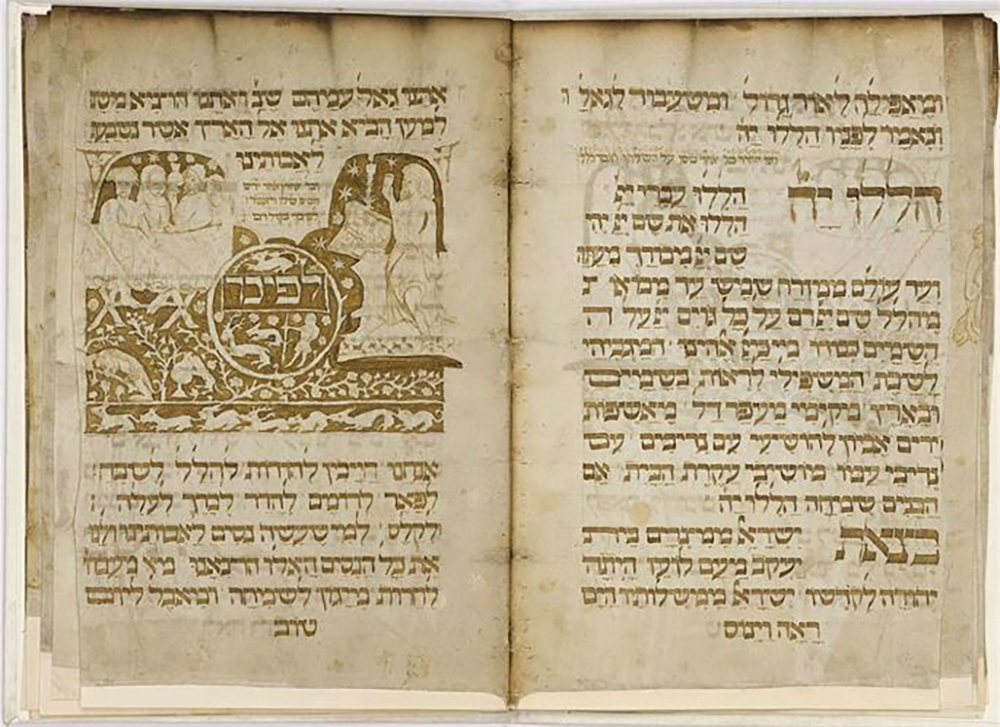 אתנו גאל עמהם שנ' ואתנו הוציא משם
למען הביא אתנו אל הארץ אשר נשבע
לאבותינו
לפיכך
אנחנו חייבין להודות להלל לשבח
לפאר לרומם להדר לברך לעלה
ולקלס למי שעשה נסים לאבותינו ולנו
את כל הנסים האלו הוציאנו מעבדו
לחרות מייגון לשמחה ומאבל ליום
טוב
ומאפילה לאור גדול ומשעבוד לגאל
ונאמר לפניו הללו יה
הללו יה הללו עבדי יי
הללו את שם יי יהי
שם יי מבורך מעתה
ועד עולם ממזרח שמש עד מבואו
מהלל שם יי רם על כל גוים יי על ה
השמים כבודו מי כיי אלהינו המגביהי
לשבת המשפילי לראות בשמים
ובארץ מקימי מעפר דל מאשפות
ירים אביון להושיבי עם נדיבים עם
נדיבי עמו מושיבי עקרת הבית אם
הבנים שמחה הללו יה
בצאת ישראל ממצרים בית
יעקב מעם לועז היתה
יהודה לקדשו ישראל ממשלותיו הים
ראה וינוס